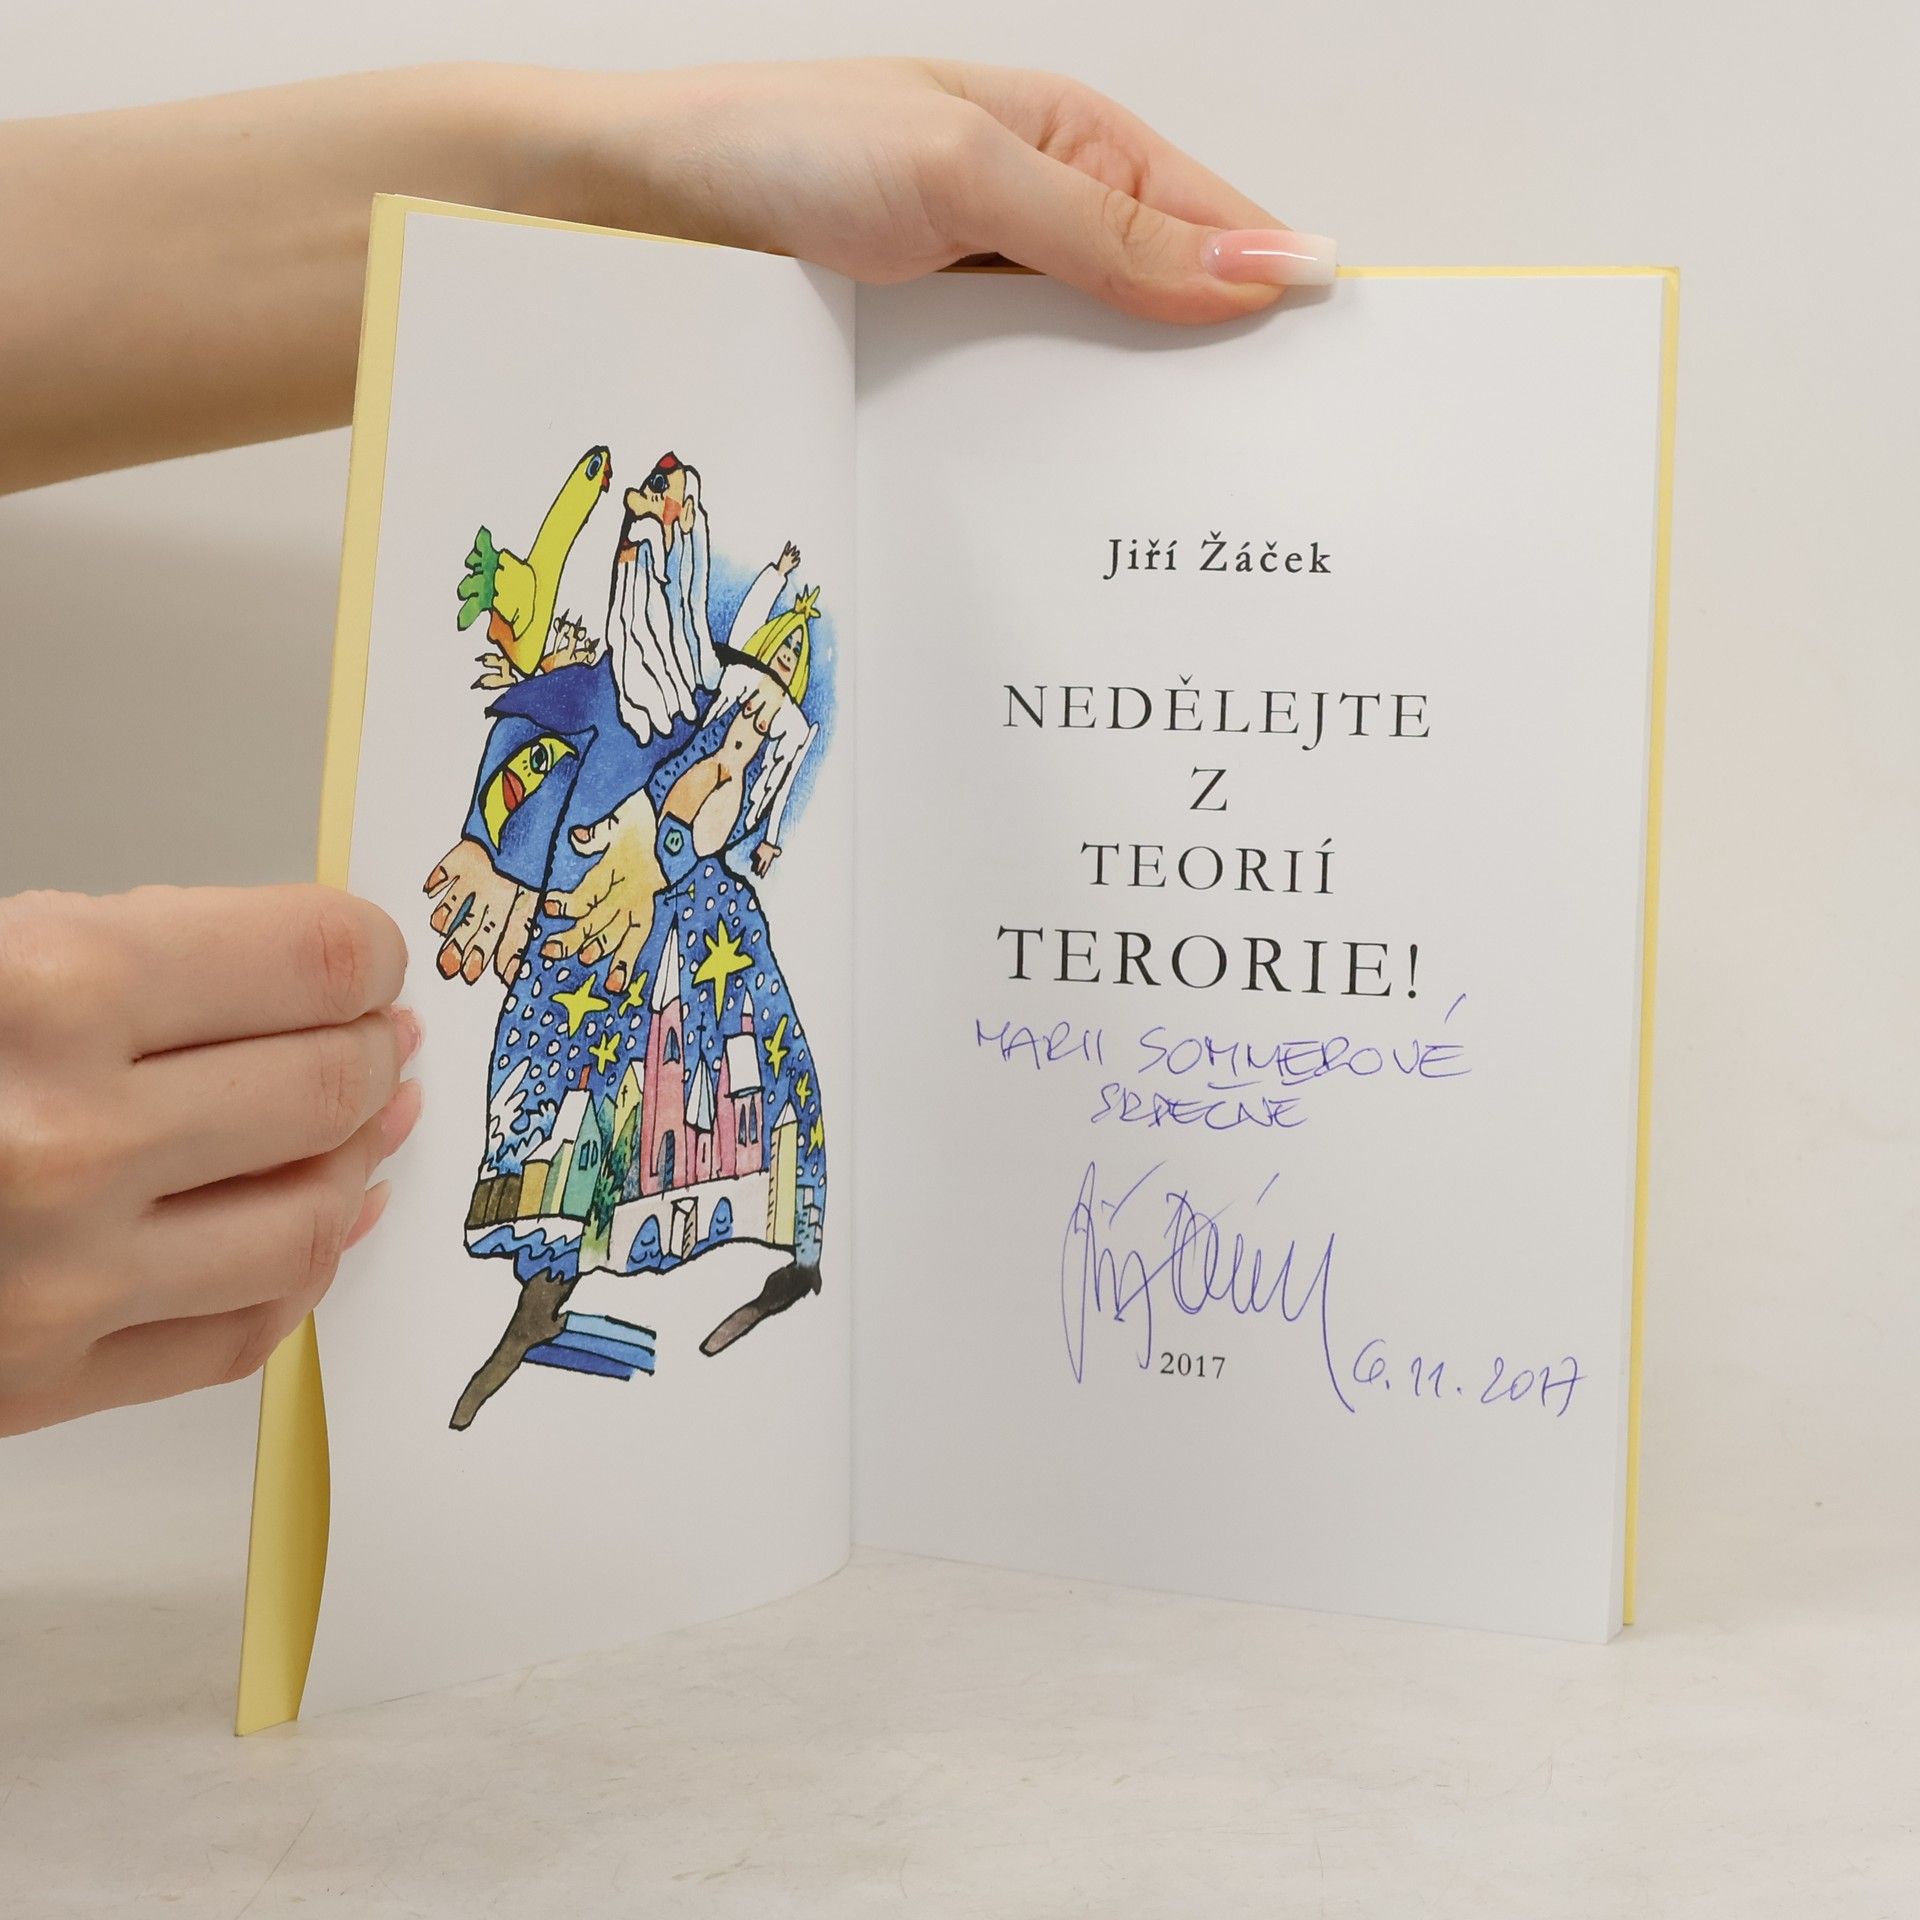 Jiří Žáček
NEDĚLEJTE
Z
TEORIÍ
TERORIE!
MARII SOMMEROVÉ
SRDEČNĚ
Jiří Žáček
2017
6. 11. 2017